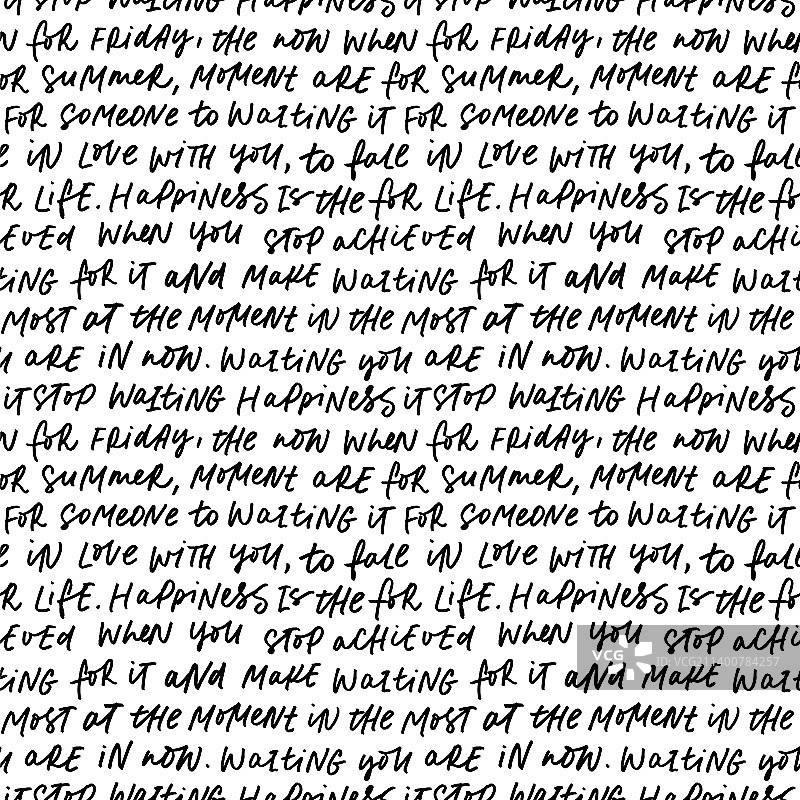 it STOP WAITING HAPPINESS it STOP WAITING HAPPINESS
N FOR FRIDAY, THE NOW WHEN FOR FRIDAY, THE NOW WHEN
OR SUMMER, MOMENT ARE FOR SUMMER, MOMENT ARE F
FOR SOMEONE to WAITING IT FOR SOMEONE to WAITING IT
e IN LOVE WITH YOU, to fall IN LOVE WITH YOU, to fall
R LIFE. HAPPINESS IS THE FOR LIFE. HAPPINESS IS THE FO
EVED WHEN YOU STOP ACHIEVED WHEN YOU STOP ACHI
TING FOR IT AND MAKE WAITING FOR IT AND MAKE WAIT
MOST AT THE MOMENT IN THE MOST AT THE MOMENT IN THE
U ARE IN NOW. WAITING YOU ARE IN NOW. WAITING YOU
IT STOP WAITING HAPPINESS IT STOP WAITING HAPPINESS
N FOR FRIDAY, THE NOW WHEN FOR FRIDAY, THE NOW WHEN
OR SUMMER, MOMENT ARE FOR SUMMER, MOMENT ARE F
FOR SOMEONE to WAITING IT FOR SOMEONE to WAITING IT
e IN LOVE WITH YOU, to fall IN LOVE WITH YOU, to fall
R LIFE. HAPPINESS IS THE FOR LIFE. HAPPINESS IS THE FO
EVED WHEN YOU STOP ACHIEVED WHEN YOU STOP ACHI
VCG ID:VCG211400784257
TING FOR IT AND MAKE WAITING FOR IT AND MAKE WAIT
MOST AT THE MOMENT IN THE MOST AT THE MOMENT IN THE
U ARE IN NOW. WAITING YOU ARE IN NOW. WAITING YOU
IT STOP WAITING HAPPINESS IT STOP WAITING HAPPINESS